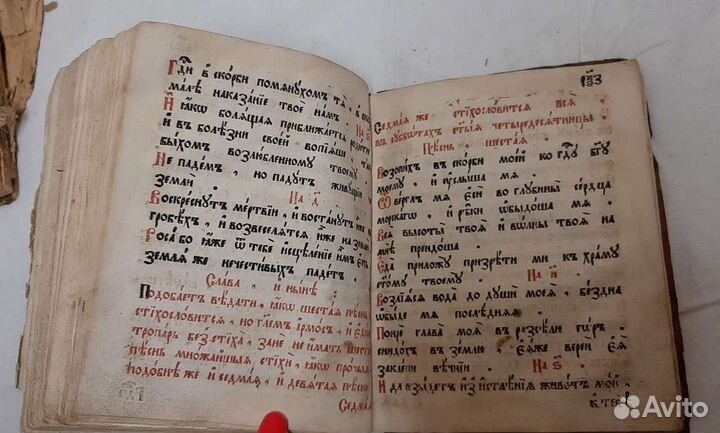 Гдⷭ҇и в скорби помянухомъ тѧ, в ско
малѣ наказанїе твоѐ намъ. На ѕ҃
И ꙗкѡ болящая приближается родити
и въ болѣзни своей вопияше, тако
быхомъ возлюбленному твоему
Не падемъ, но падутъ живущии
земли. На д҃
Воскреснутъ мертвїи, и востанутъ иже в
гробѣхъ, и возвеселятся иже на земли
Роса бо ꙗже ѿ тебѐ исцѣленїе имъ есть
земля же нечестивыхъ падетъ.
Слава, и нынѣ
Подобаетъ вѣдати, ꙗкѡ шестая пѣснь
стїхословится, но глемъ їрмосъ, и
тропарь без стїха, зане не имать шестая
пѣснь множайшыя стїхи, ꙗкѡ прочыя
подобнѣ же и седмая, и девятая пѣсни
Седмая
Седмая же стїхословится вся,
в суббѡтахъ стыя четыредесятницы
Пѣснь, шестая.
Возопихъ въ скорби моей ко гдⷭ҇у бг҃у
моему, и услыша мя.
Ѿверглъ мя еси во глубины сердца
морскагѡ, и рѣки ѡбыдоша мя.
Вся высоты твоя и волны твоя на
мнѣ преидоша.
Еда приложу призрѣти ми къ храму
стому твоему. На и҃
Возлїяся вода до души моея, бездна
ѡбыде мя послѣдняя.
Понре глава моя въ разсѣли горъ,
снидохъ въ землю, еяже вереи ея
заклепи вѣчнїи. На ѕ҃
И да взыдетъ из истлѣнїя живѡтъ мой,
к тебѣ
Avito